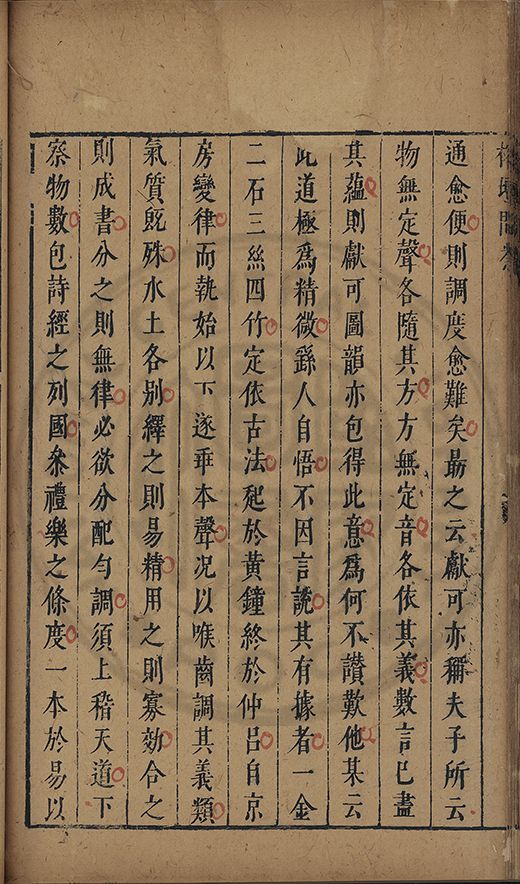 通愈便則調度愈難矣勗之云獻可亦稱夫子所云
物無定聲各隨其方方無定音各依其義數言已盡
其蘊則獻可圖韻亦包得此意爲何不讚歎他某云
此道極爲精微繇人自悟不因言說其有據者一金
二石三絲四竹定依古法起於黃鐘終於仲呂自京
房變律而執始以下遂乖本聲况以喉齒調其義類
氣質旣殊水土各别繹之則易精用之則寡効合之
則成書分之則無律必欲分配勻調須上稽天道下
察物數包詩經之列國叅禮樂之條度一本於易以